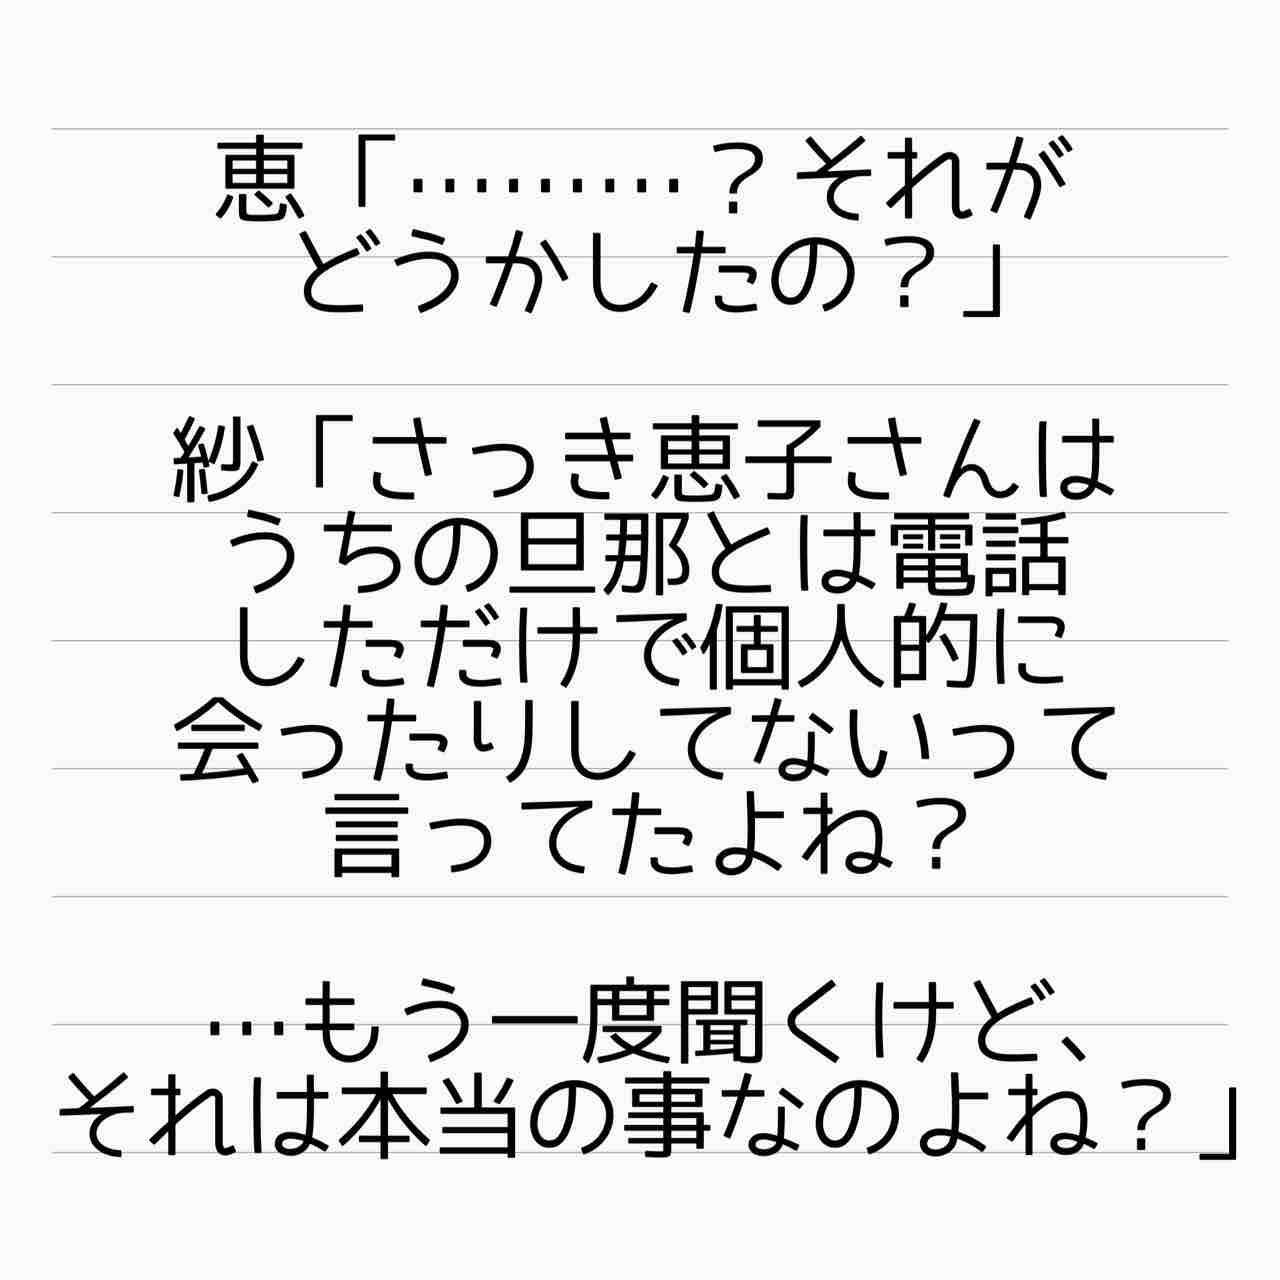 恵「………？それが
どうかしたの？」
紗「さっき恵子さんは
うちの旦那とは電話
しただけで個人的に
会ったりしてないって
言ってたよね？
…もう一度聞くけど、
それは本当の事なのよね？」